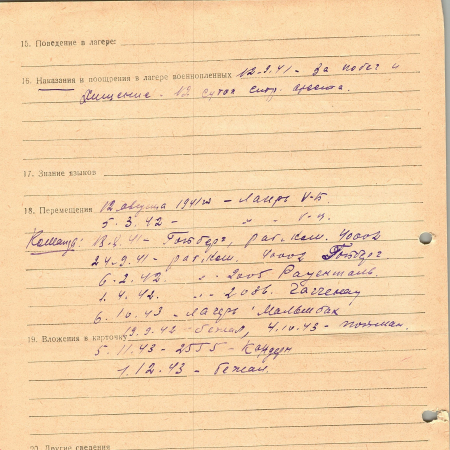 15. Поведение в лагере:
16. Наказания и поощрения в лагере военнопленных 12-9-41 - За побег и
хищение - 12 суток ареста.
17. Знание языков
18. Перемещения 12 августа 1941 г. - Лагерь V-Б.
5.3.42 - " "
Команда: 13.4.41 - Готберг, раб. ком. 4000
24-9-41 - раб. ком. 4000 Готберг
6.2.42. " - 2005
1.4.42. "
6.10.43 - Лагерь Мальшбах
19.9.42 бежал, 4.10.43 - пойман.
19. Вложения в карточку
5.11.43 - 2555 - Кандерн
1.12.43 - бежал.
20. Другие сведения